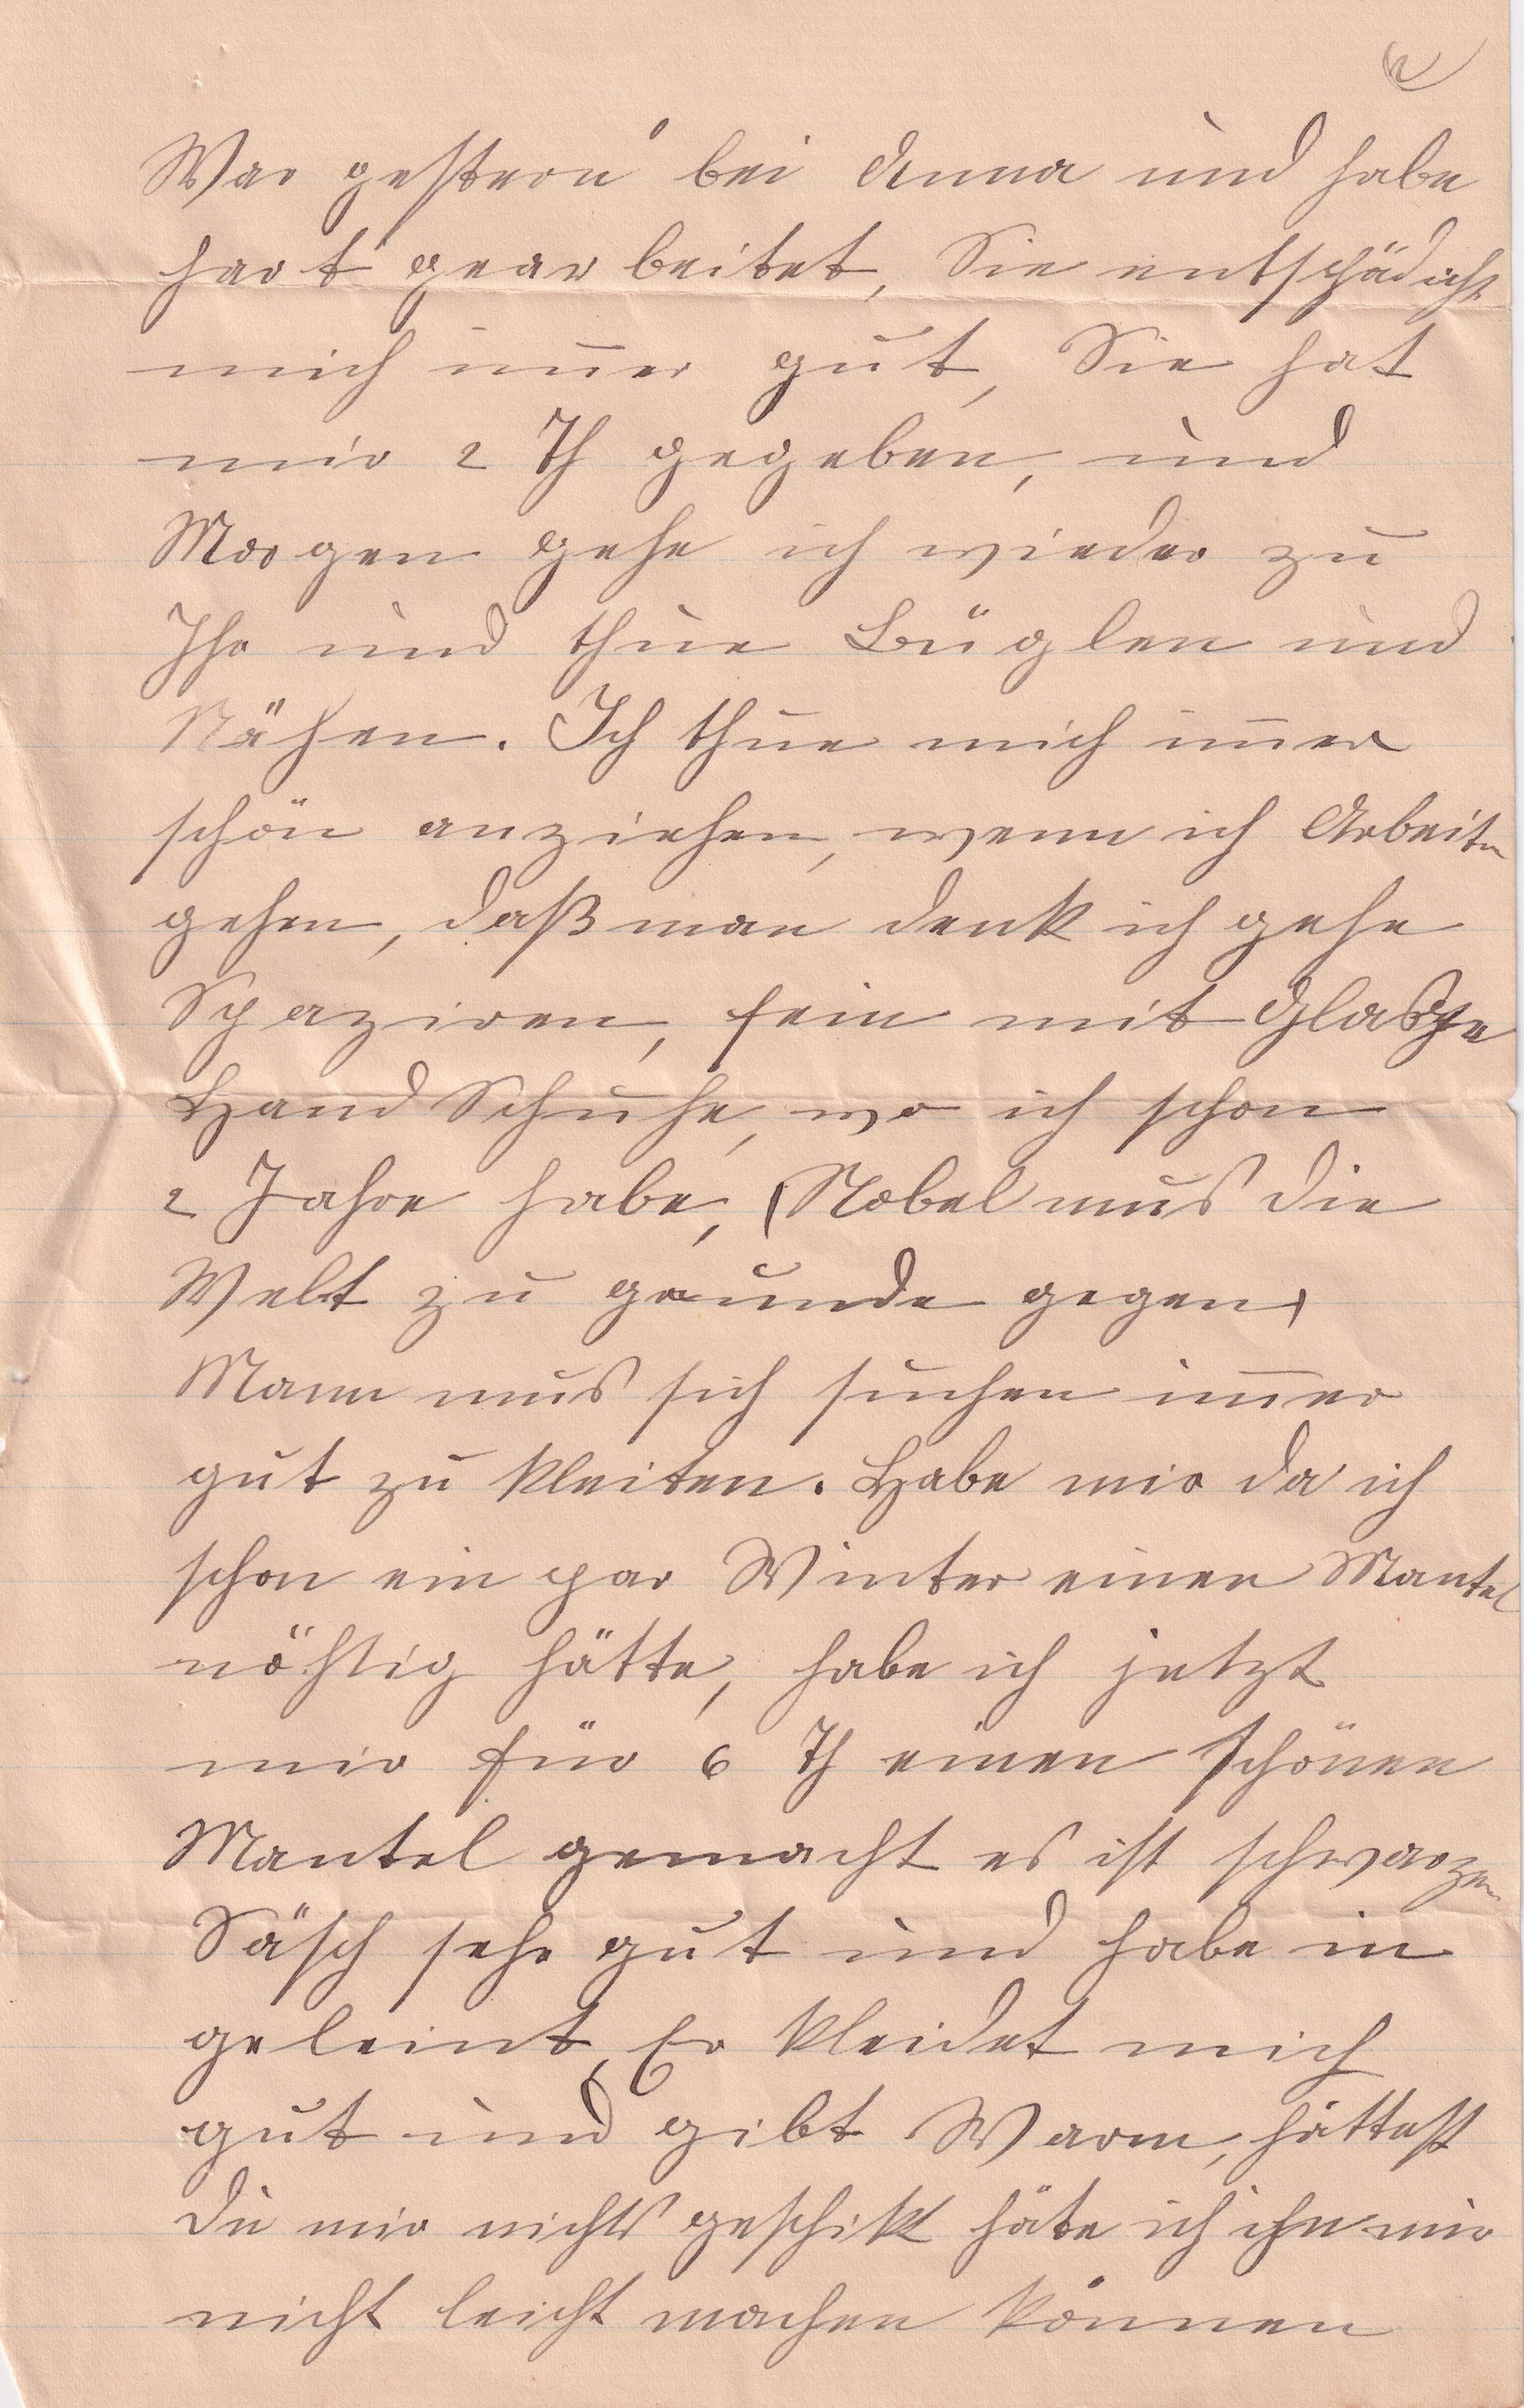 War gestern bei Anna und habe
hart gearbeitet, Sie entschädicht
mich im̅er gut, Sie hat
mir 2 Th gegeben, und
Morgen gehe ich wieder zu
Ihr und thue Büglen und
Nähen. Ich thue mich im̅er
schön anziehen, wenn ich Arbeiten
gehen, daß man denk ich gehe
Spaziren, fein mit
Hand Schuhe, wo ich schon
2 Jahre habe, (Nobel mus die
Welt zu grunde gegen)
Mann mus sich suchen im̅er
gut zu kleiten. Habe mir da ich
schon ein par Winter einen Mantel
nöhtig hätte, habe ich jetzt
mir für 6 Th einen schönen
Mantel gemacht es ist schwarzen
Säsch sehr gut und habe in
geleint, Er kleidet mich
gut und gibt Warm, hättest
du mir nichts geschikt häte ich ihn mir
nicht leicht machen können